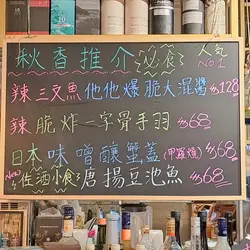 秋香推介 必食 人氣 No.1
辣 三文魚他他爆脆大混醬 $128
辣 脆炸一字骨手羽 $68
日本味噌釀蟹蓋(甲羅燒) $68
New 佐酒小食 唐揚豆池魚 $68